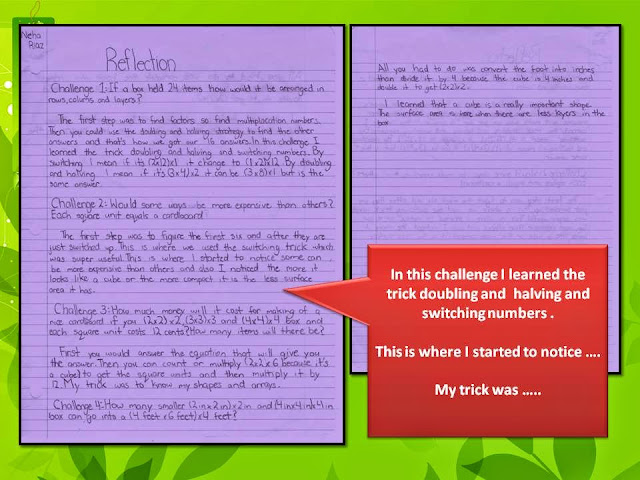 Neha
Riaz
Reflection
Challenge 1: If a box held 24 items how would it be arrenged in
rows, colums and layers?
The first step was to find factors so find multiplacation numbers.
Then you could use the doubling and halving strategy to find the other
answers and that's how we got our 16 answers. In this challenge I
learned the trick doubling and halving and switching numbers. By
switching I mean if its (2x12)x1 it change to (1x2)x12. By doubling
and halving I mean if it's (3x4)x2 it can be (3x8)x1 but is the
same answer.
Challenge 2: Would some ways be more expensive than others?
Each square unit equals a cardboard
The first step was to figure the first six and after they are
just switched up. This is where we used the switching trick which
was super useful. This is where I started to notice some can
be more expensive than others and also I noticed the more it
looks like a cube or the more compact it is the less surface
area it has.
Challenge 3: How much money will it cost for making of a
nice cardboard if you (2x2)x2, (3x3)x3 and (4x4)x4 box and
each square unit costs 12 cents? How many items will there be?
First you would answer the equation that will give you
the answer. Then you can count or multiply (2x2x6 because it's
a cube) to get the square units and then multiply it by
12. My trick was to know my shapes and arrays.
Challenge 4: How many smaller (2in x 2in) x 2in and (4in x 4in) x 4in
box can go into a (4 feet x 6 feet) x 4 feet?
All you had to do was convert the foot into inches
than divide it by 4 because the cube is 4 inches and
double it to get (2x2)x2.
I learned that a cube is a really important shape.
The surface area is less when there are less layers in the
box
In this challenge I learned the
trick doubling and halving and
switching numbers .
This is where I started to notice ....
My trick was .....